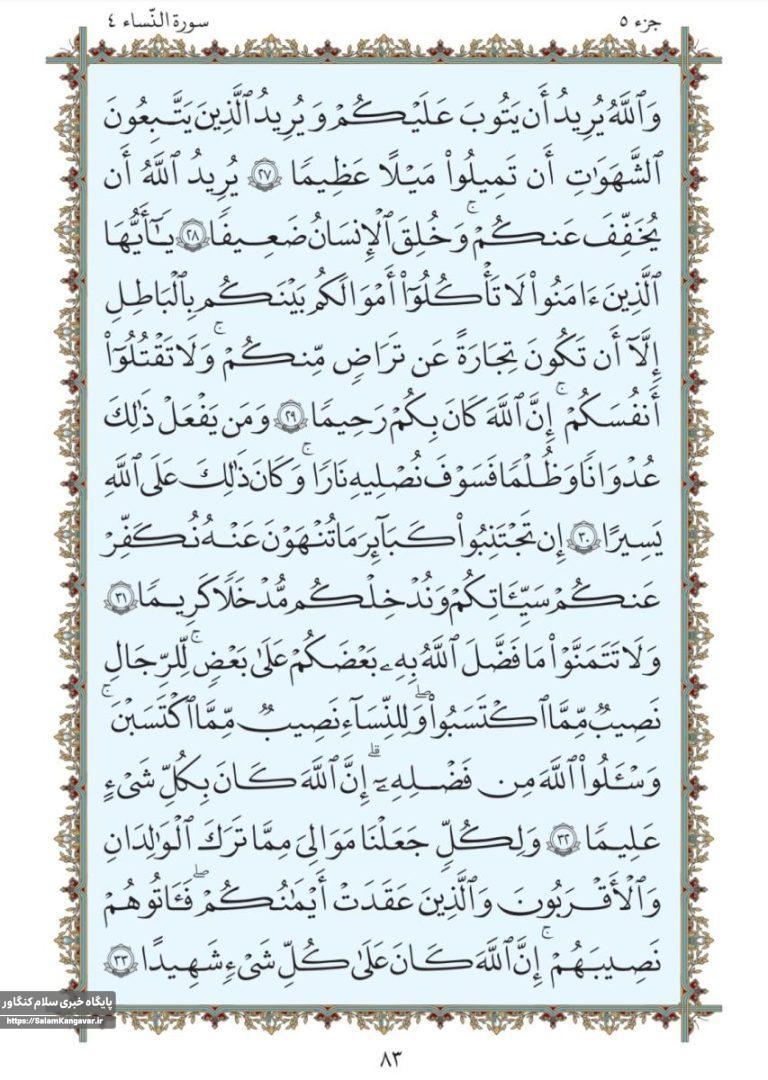 جزء ٥
سورة النّساء ٤
وَٱللَّهُ يُرِيدُ أَن يَتُوبَ عَلَيۡكُمۡ وَيُرِيدُ ٱلَّذِينَ يَتَّبِعُونَ
ٱلشَّهَوَٰتِ أَن تَمِيلُواْ مَيۡلًا عَظِيمًا ٢٧ يُرِيدُ ٱللَّهُ أَن
يُخَفِّفَ عَنكُمۡۚ وَخُلِقَ ٱلۡإِنسَانُ ضَعِيفًا ٢٨ يَـٰٓأَيُّهَا
ٱلَّذِينَ ءَامَنُواْ لَا تَأۡكُلُوٓاْ أَمۡوَالَكُم بَيۡنَكُم بِٱلۡبَاطِلِ
إِلَّآ أَن تَكُونَ تِجَارَةً عَن تَرَاضٍ مِّنكُمۡۚ وَلَا تَقۡتُلُوٓاْ
أَنفُسَكُمۡۚ إِنَّ ٱللَّهَ كَانَ بِكُمۡ رَحِيمًا ٢٩ وَمَن يَفۡعَلۡ ذَٰلِكَ
عُدۡوَانًا وَظُلۡمًا فَسَوۡفَ نُصۡلِيهِ نَارًاۚ وَكَانَ ذَٰلِكَ عَلَى ٱللَّهِ
يَسِيرًا ٣٠ إِن تَجۡتَنِبُواْ كَبَآئِرَ مَا تُنۡهَوۡنَ عَنۡهُ نُكَفِّرۡ
عَنكُمۡ سَيِّـَٔاتِكُمۡ وَنُدۡخِلۡكُم مُّدۡخَلًا كَرِيمًا ٣١
وَلَا تَتَمَنَّوۡاْ مَا فَضَّلَ ٱللَّهُ بِهِۦ بَعۡضَكُمۡ عَلَىٰ بَعۡضٍۚ لِّلرِّجَالِ
نَصِيبٌ مِّمَّا ٱكۡتَسَبُواْۖ وَلِلنِّسَآءِ نَصِيبٌ مِّمَّا ٱكۡتَسَبۡنَۚ
وَسۡـَٔلُواْ ٱللَّهَ مِن فَضۡلِهِۦٓۗ إِنَّ ٱللَّهَ كَانَ بِكُلِّ شَيۡءٍ
عَلِيمًا ٣٢ وَلِكُلٍّ جَعَلۡنَا مَوَالِيَ مِمَّا تَرَكَ ٱلۡوَٰلِدَانِ
وَٱلۡأَقۡرَبُونَۚ وَٱلَّذِينَ عَقَدَتۡ أَيۡمَٰنُكُمۡ فَـَٔاتُوهُمۡ
نَصِيبَهُمۡۚ إِنَّ ٱللَّهَ كَانَ عَلَىٰ كُلِّ شَيۡءٍ شَهِيدًا ٣٣
پایگاه خبری سلام کنگاور
https://SalamKangavar.ir
٨٣